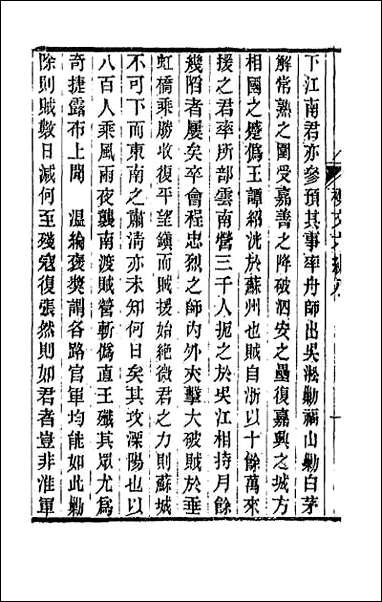 下江南君亦參預其事率舟師出吳淞勦福山勦白茅
解常熟之圍受嘉善之降破泗安之壘復嘉興之城方
相國之蹙僞王譚紹洸於蘇州也賊自浙以十餘萬來
援之君率所部雲南營三千人扼之於吳江相持月餘
幾陷者屢矣卒會程忠烈之師內外夾擊大破賊於垂
虹橋乘勝收復平望鎭而賊援始絕微君之力則蘇城
不可下而東南之肅淸亦未知何日矣其攻溧陽也以
八百人乘風雨夜襲南渡賊營斬僞直王殲其眾尤爲
奇捷露布上聞　溫綸褒獎謂各路官軍均能如此勦
除則賊數日減何至殘寇復張然則如君者豈非淮軍